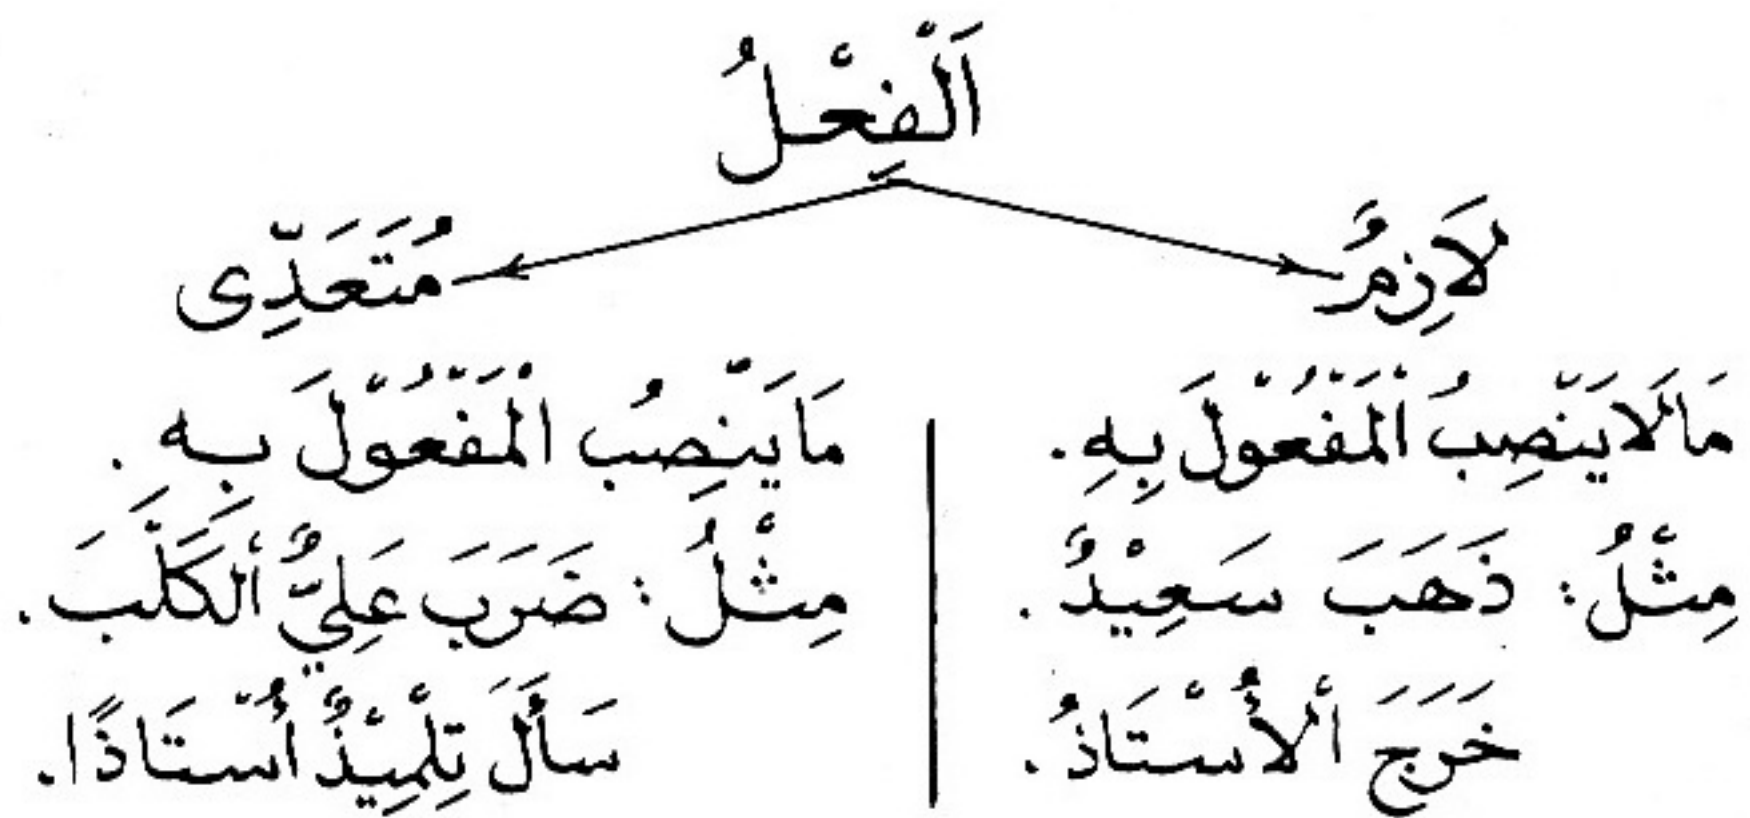 اَلْفِعْلُ
لَازِمٌ
مُتَعَدِّى
مَالَايَنْصِبُ الْمَفْعُوْلَ بِهِ.
مِثْلُ: ذَهَبَ سَعِيْدٌ.
خَرَجَ الْأُسْتَاذُ.
مَايَنْصِبُ الْمَفْعُوْلَ بِهِ.
مِثْلُ: ضَرَبَ عَلِيٌّ الْكَلْبَ.
سَأَلَ تِلْمِيْذٌ أُسْتَاذًا.